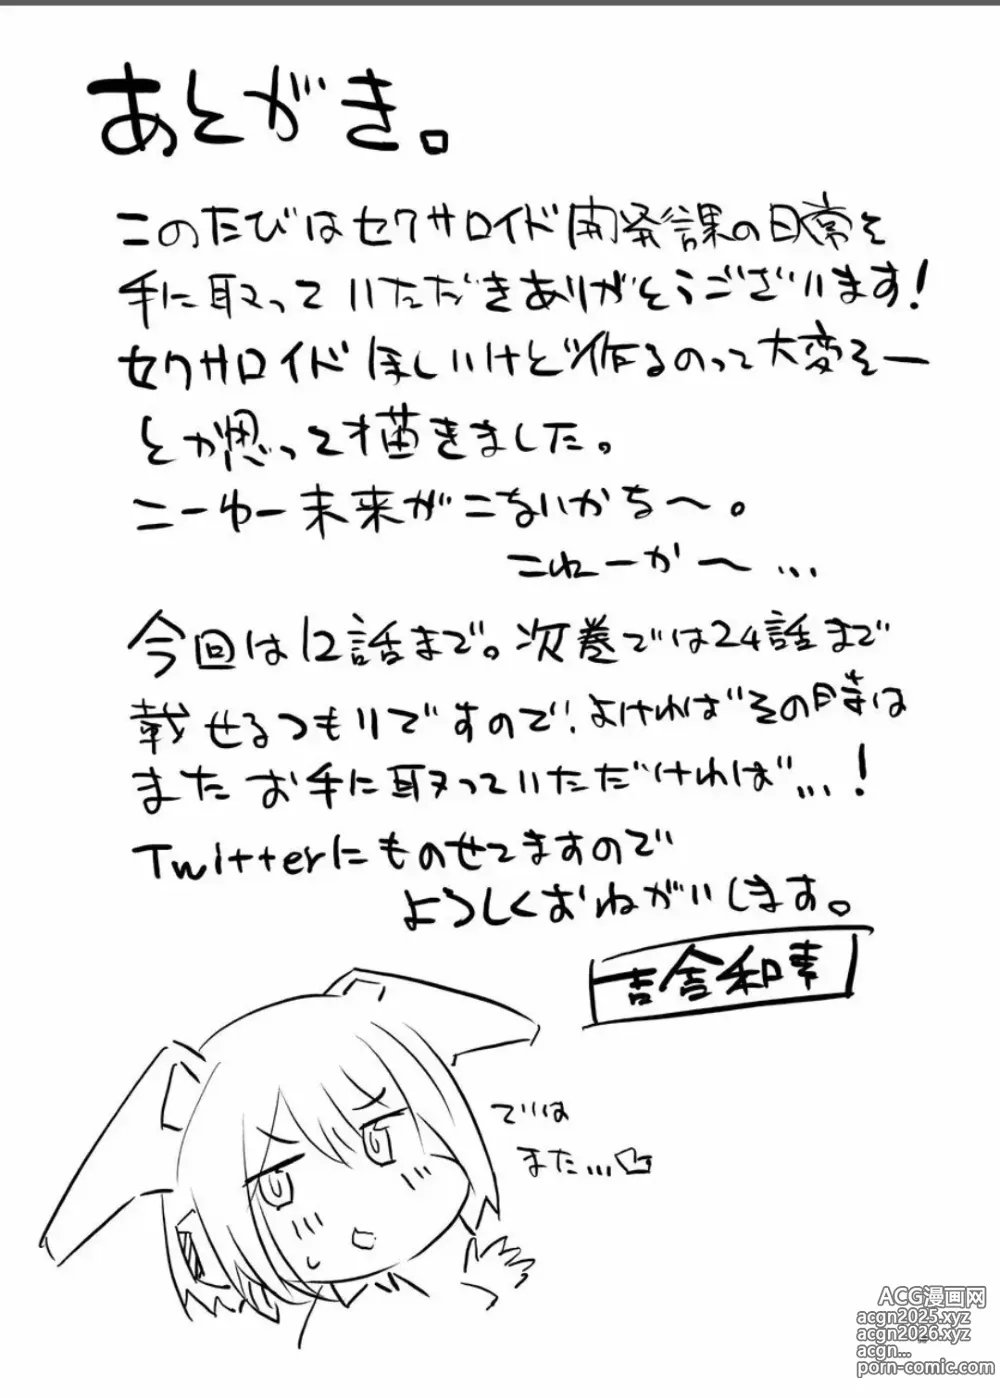 あとがき。
このたびはセクサロイド開発課の日常を
手に取っていただきありがとうございます!
セクサロイドほしいけど作るのって大変そー
とか思って描きました。
こーゆー未来がこないかな〜。
こねーか〜...
今回は12話まで。次巻では24話まで
載せるつもりですので!よければその時は
またお手に取っていただければ...!
Twitterにものせてますので
よろしくおねがいします。
吉舎和幸
では
また...
ACG漫画网
acgn2025.xyz
acgn2026.xyz
acgn...
porn-comic.com